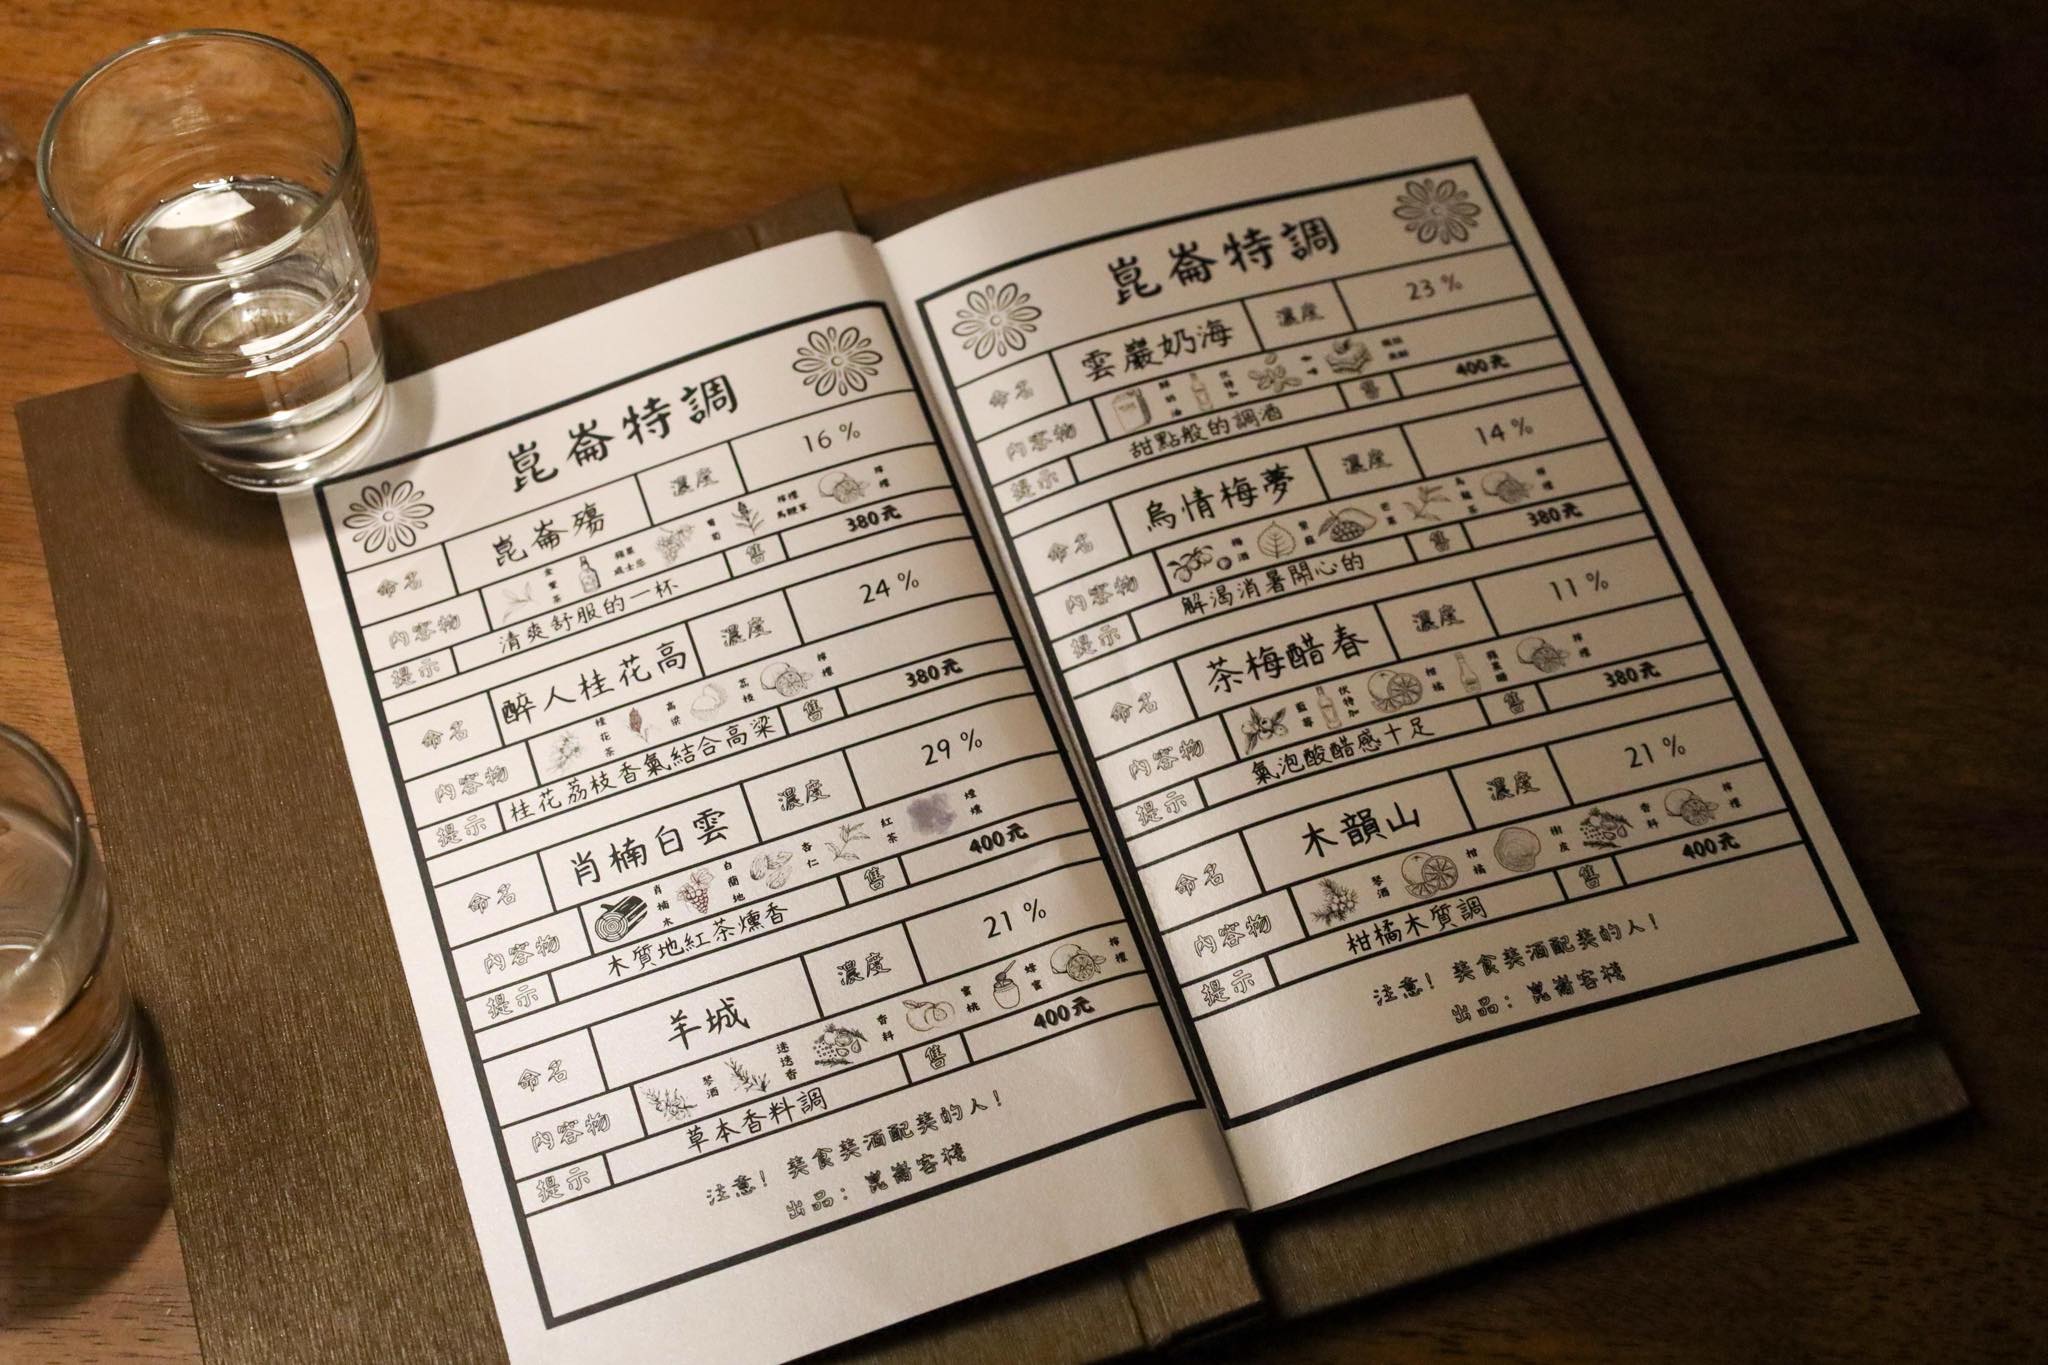 崑崙特調
命名 崑崙殤 濃度 16%
內容物 金萱茶 蘋果威士忌 葡萄 檸檬馬鞭草 檸檬
提示 清爽舒服的一杯 售 380元
命名 醉人桂花高 濃度 24%
內容物 桂花茶 高粱 荔枝 檸檬
提示 桂花荔枝香氣結合高粱 售 380元
命名 肖楠白雲 濃度 29%
內容物 肖楠木 白蘭地 杏仁 紅茶 煙燻
提示 木質地紅茶燻香 售 400元
命名 羊城 濃度 21%
內容物 琴酒 迷迭香 香料 蜜桃 蜂蜜 檸檬
提示 草本香料調 售 400元
注意! 獎食獎酒配獎的人!
出品: 崑崙客棧
崑崙特調
命名 雲巖奶海 濃度 23%
內容物 鮮奶油 伏特加
提示 甜點般的調酒 售 400元
命名 烏情梅夢 濃度 14%
內容物 梅酒 紫蘇 芒果 烏龍茶 檸檬
提示 解渴消暑開心的 售 380元
命名 茶梅醋春 濃度 11%
內容物 藍莓 伏特加 柑橘 蘋果醋 檸檬
提示 氣泡酸醋感十足 售 380元
命名 木韻山 濃度 21%
內容物 琴酒 柑橘 樹皮 香料 檸檬
提示 柑橘木質調 售 400元
注意! 獎食獎酒配獎的人!
出品: 崑崙客棧